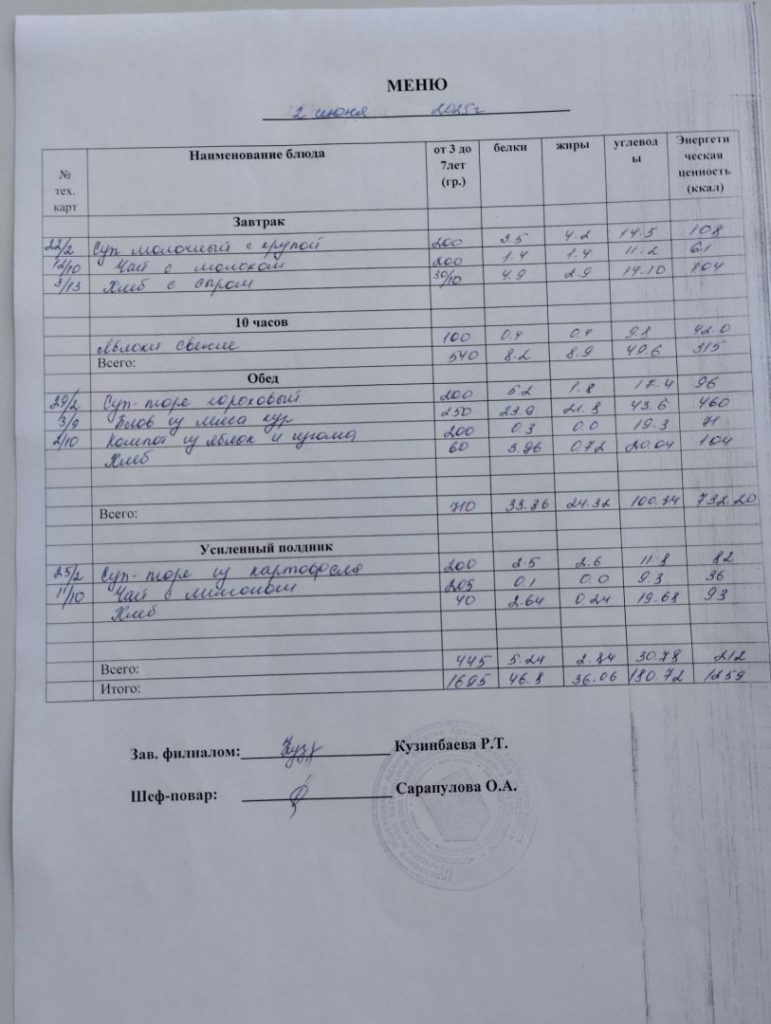 МЕНЮ
2 июня 2025г
№ тех. карт Наименование блюда от 3 до 7лет (гр.) белки жиры углеводы Энергетическая ценность (ккал)
Завтрак
22/2 Суп молочный с крупой 200 3.5 4.2 14.5 108
12/10 Чай с молоком 200 1.4 1.4 11.2 61
3/13 Хлеб с сыром 30/10 4.9 2.9 14.10 104
10 часов
Яблоки свежие 100 0.4 0.4 9.8 42.0
Всего: 540 8.2 8.9 49.6 315
Обед
29/2 Суп-пюре гороховый 200 5.2 1.8 17.4 96
3/9 Плов из мяса кур 250 23.9 21.8 43.6 460
2/10 Компот из яблок и изюма 200 0.3 0.0 19.3 71
Хлеб 60 3.96 0.72 20.04 104
Всего: 710 33.36 24.32 100.34 732.20
Усиленный полдник
25/2 Суп-пюре из картофеля 200 2.5 2.6 11.8 82
11/10 Чай с лимоном 205 0.1 0.0 9.3 36
Хлеб 40 2.64 0.24 19.68 93
Всего: 445 5.24 2.84 30.78 212
Итого: 1695 46.8 36.06 180.72 1259
Зав. филиалом: Кузинбаева Р.Т.
Шеф-повар: Сарапулова О.А.